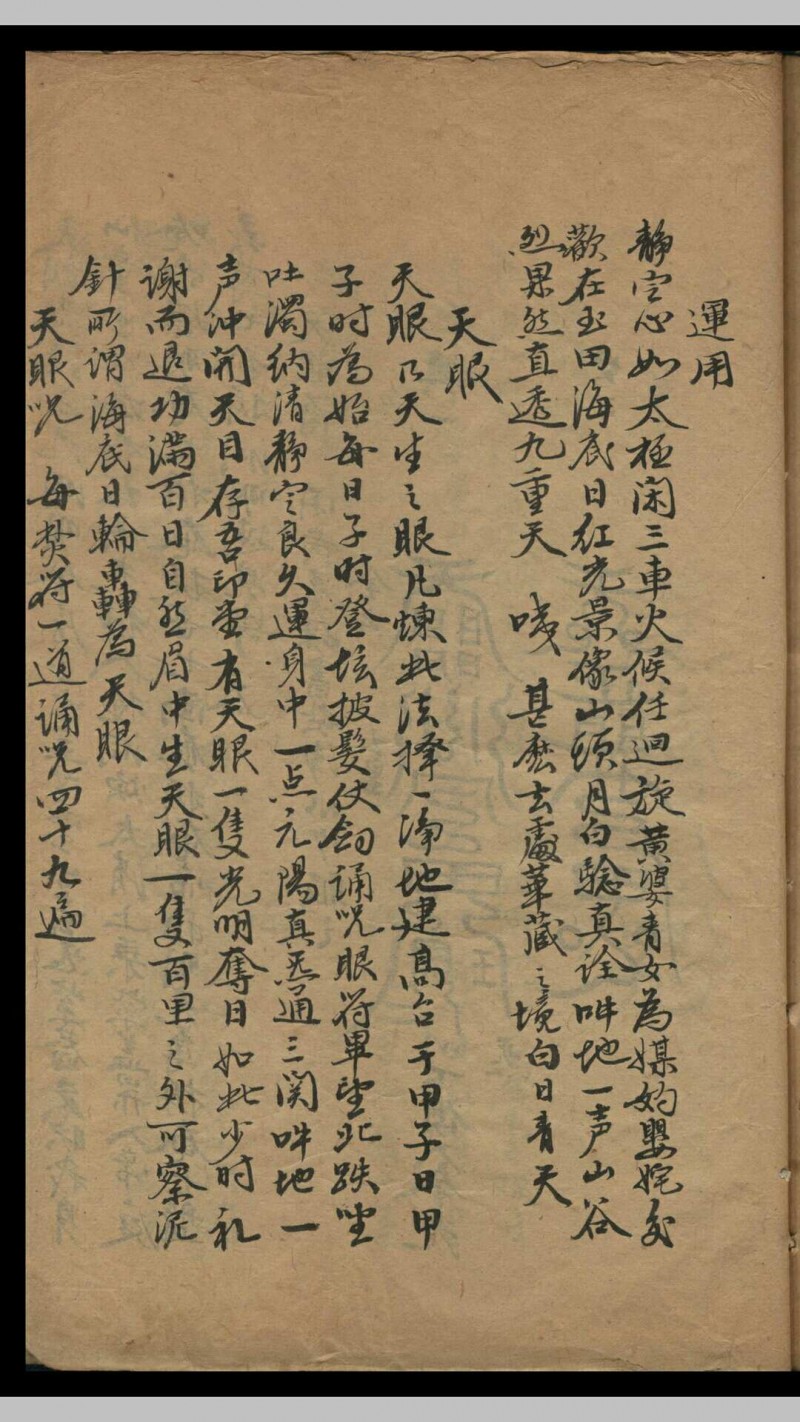 運用
靜定心如太極閑三車火候任迴旋黃婆青女為媒妁嬰姹交
歡在玉田海底日紅光景像山頭月白驗真詮吽地一声山谷
烈果然直透九重天　嘆　甚麽去處華藏之境白日青天
天眼
天眼乃天生之眼凡煉此法擇一淨地建高台于甲子日甲
子时為始每日子时登坛披髮仗劍誦咒眼符畢望北趺坐
吐濁納清靜定良久運身中一点元陽真炁通三関吽地一
声冲開天目存吾印堂有天眼一隻光明奪日如此少时礼
謝而退功滿百日自然眉中生天眼一隻百里之外可察泥
針所謂海底日輪轉為天眼
天眼咒　每焚符一道誦咒四十九遍